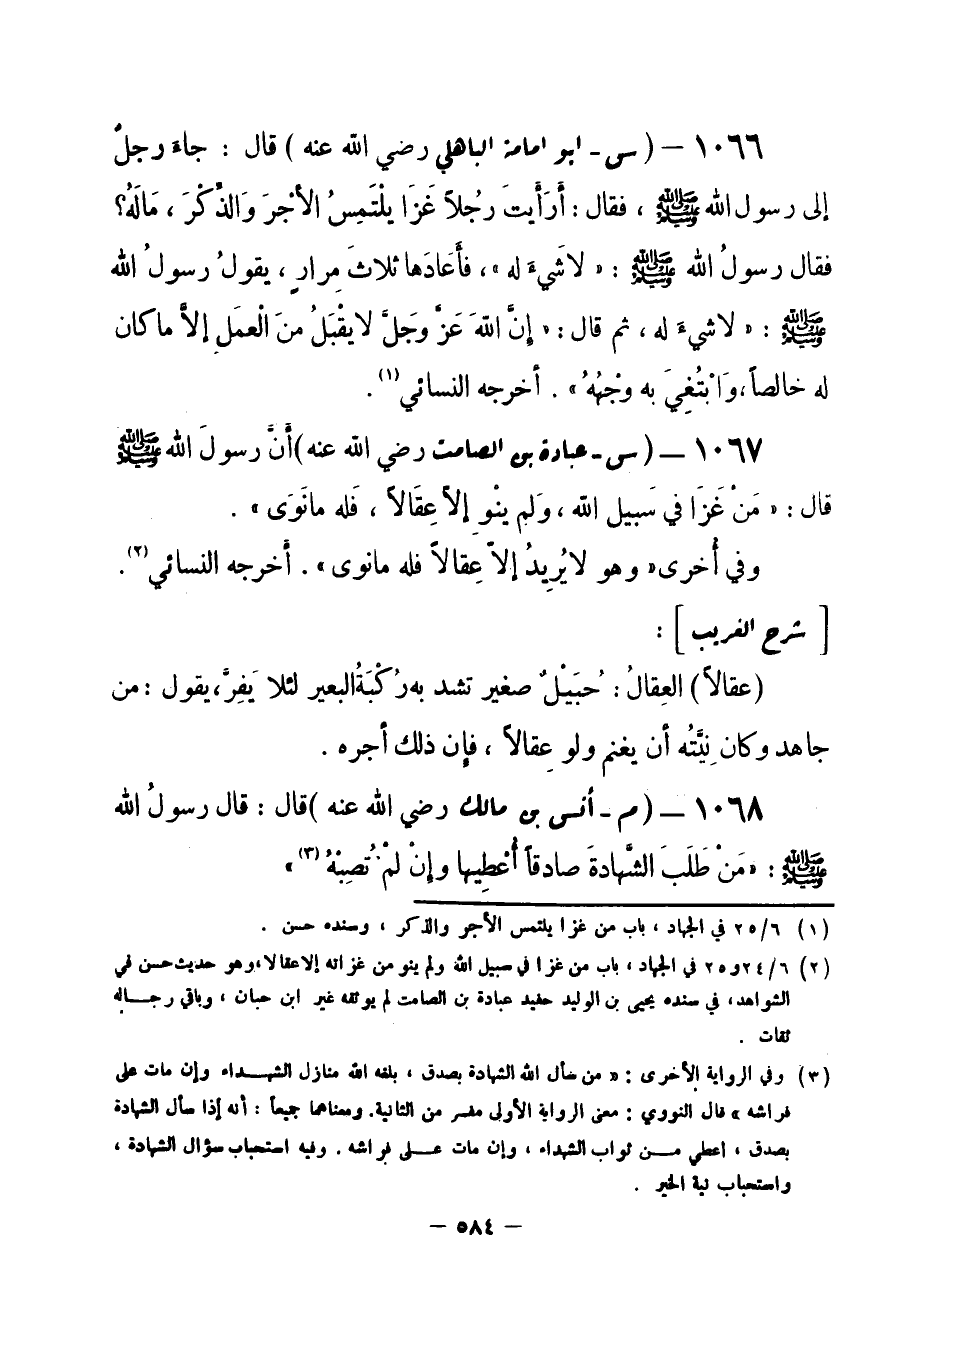 ١٠٦٦ — ( س - ابو امامة الباهلي رضي الله عنه ) قال : جاءَ رجلٌ
إلى رسول الله ﷺ ، فقال : أَرَأَيتَ رَجُلاً غَزَا يلْتَمِسُ الأَجْرَ وَالذِّكْرَ ، مَالَهُ؟
فقال رسولُ الله ﷺ : « لاشَيءَ له »، فأَعَادَها ثلاثَ مِرارٍ ، يقولُ رسولُ الله
ﷺ : « لاشيءَ له ، ثم قال : « إِنَّ اللهَ عَزَّ وَجَلَّ لايقْبَلُ منَ الْعمَلِ إِلاَّ ماكان
له خالصاً ،وَابْتُغِيَ به وجْهُهُ » . أخرجه النسائي(١) .
١٠٦٧ — ( س - عبادة بن الصامت رضي الله عنه )أَنَّ رسولَ الله ﷺ
قال : « مَنْ غَزَا في سَبيل الله ، وَلم ينْوِ إِلاَّ عِقَالاً ، فَله مانَوَى » .
وفي أُخرى« وهو لايُرِيدُ إِلاَّ عِقالاً فله مانوى » . أَخرجه النسائي(٢) .
[ شرح الغريب ] :
(عقالاً) العِقالُ : حُبَيْلٌ صغير تشد به رُكْبَةُ البعير لئلا يَفِرَّ،يقول : من
جاهد وكان نِيَّتُه أن يغنم ولو عِقالاً ، فإن ذلك أجره .
١٠٦٨ — ( م - أنس بن مالك رضي الله عنه )قال : قال رسولُ الله
ﷺ : «مَنْ طَلَبَ الشَّهادةَ صادقاً أُعْطِيها وإنْ لمْ تُصِبْهُ (٣)»
(١) ٢٥/٦ في الجهاد ، باب من غزا يلتمس الأجر والذكر ، وسنده حسن .
(٢) ٢٤/٦ و٢٥ في الجهاد ، باب من غزا في سبيل الله ولم ينو من غزاته إلا عقالا،وهو حديث حسن في
الشواهد، في سنده يحيى بن الوليد حفيد عبادة بن الصامت لم يوثقه غير ابن حبان ، وباقي رجاله
ثقات .
(٣) وفي الرواية الأخرى : « من سأل الله الشهادة بصدق ، بلغه الله منازل الشهداء وإن مات على
فراشه » قال النووي : معنى الرواية الأولى مفسر من الثانية. ومعناهما جميعاً : أنه إذا سأل الشهادة
بصدق ، اعطي من ثواب الشهداء ، وإن مات على فراشه . وفيه استحباب سؤال الشهادة ،
واستحباب نية الخير .
— ٥٨٤ —